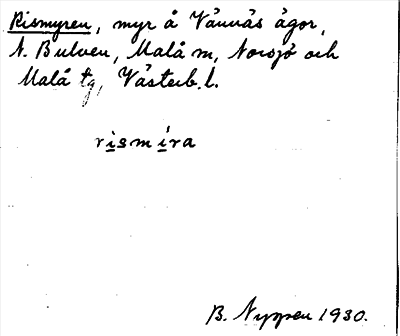 Rismyren, myr å Vännäs ägor,
N. Bulven, Malå m, Norsjö och
Malå tg, Västerb. l.
rismíra
B. Nyppen 1930.